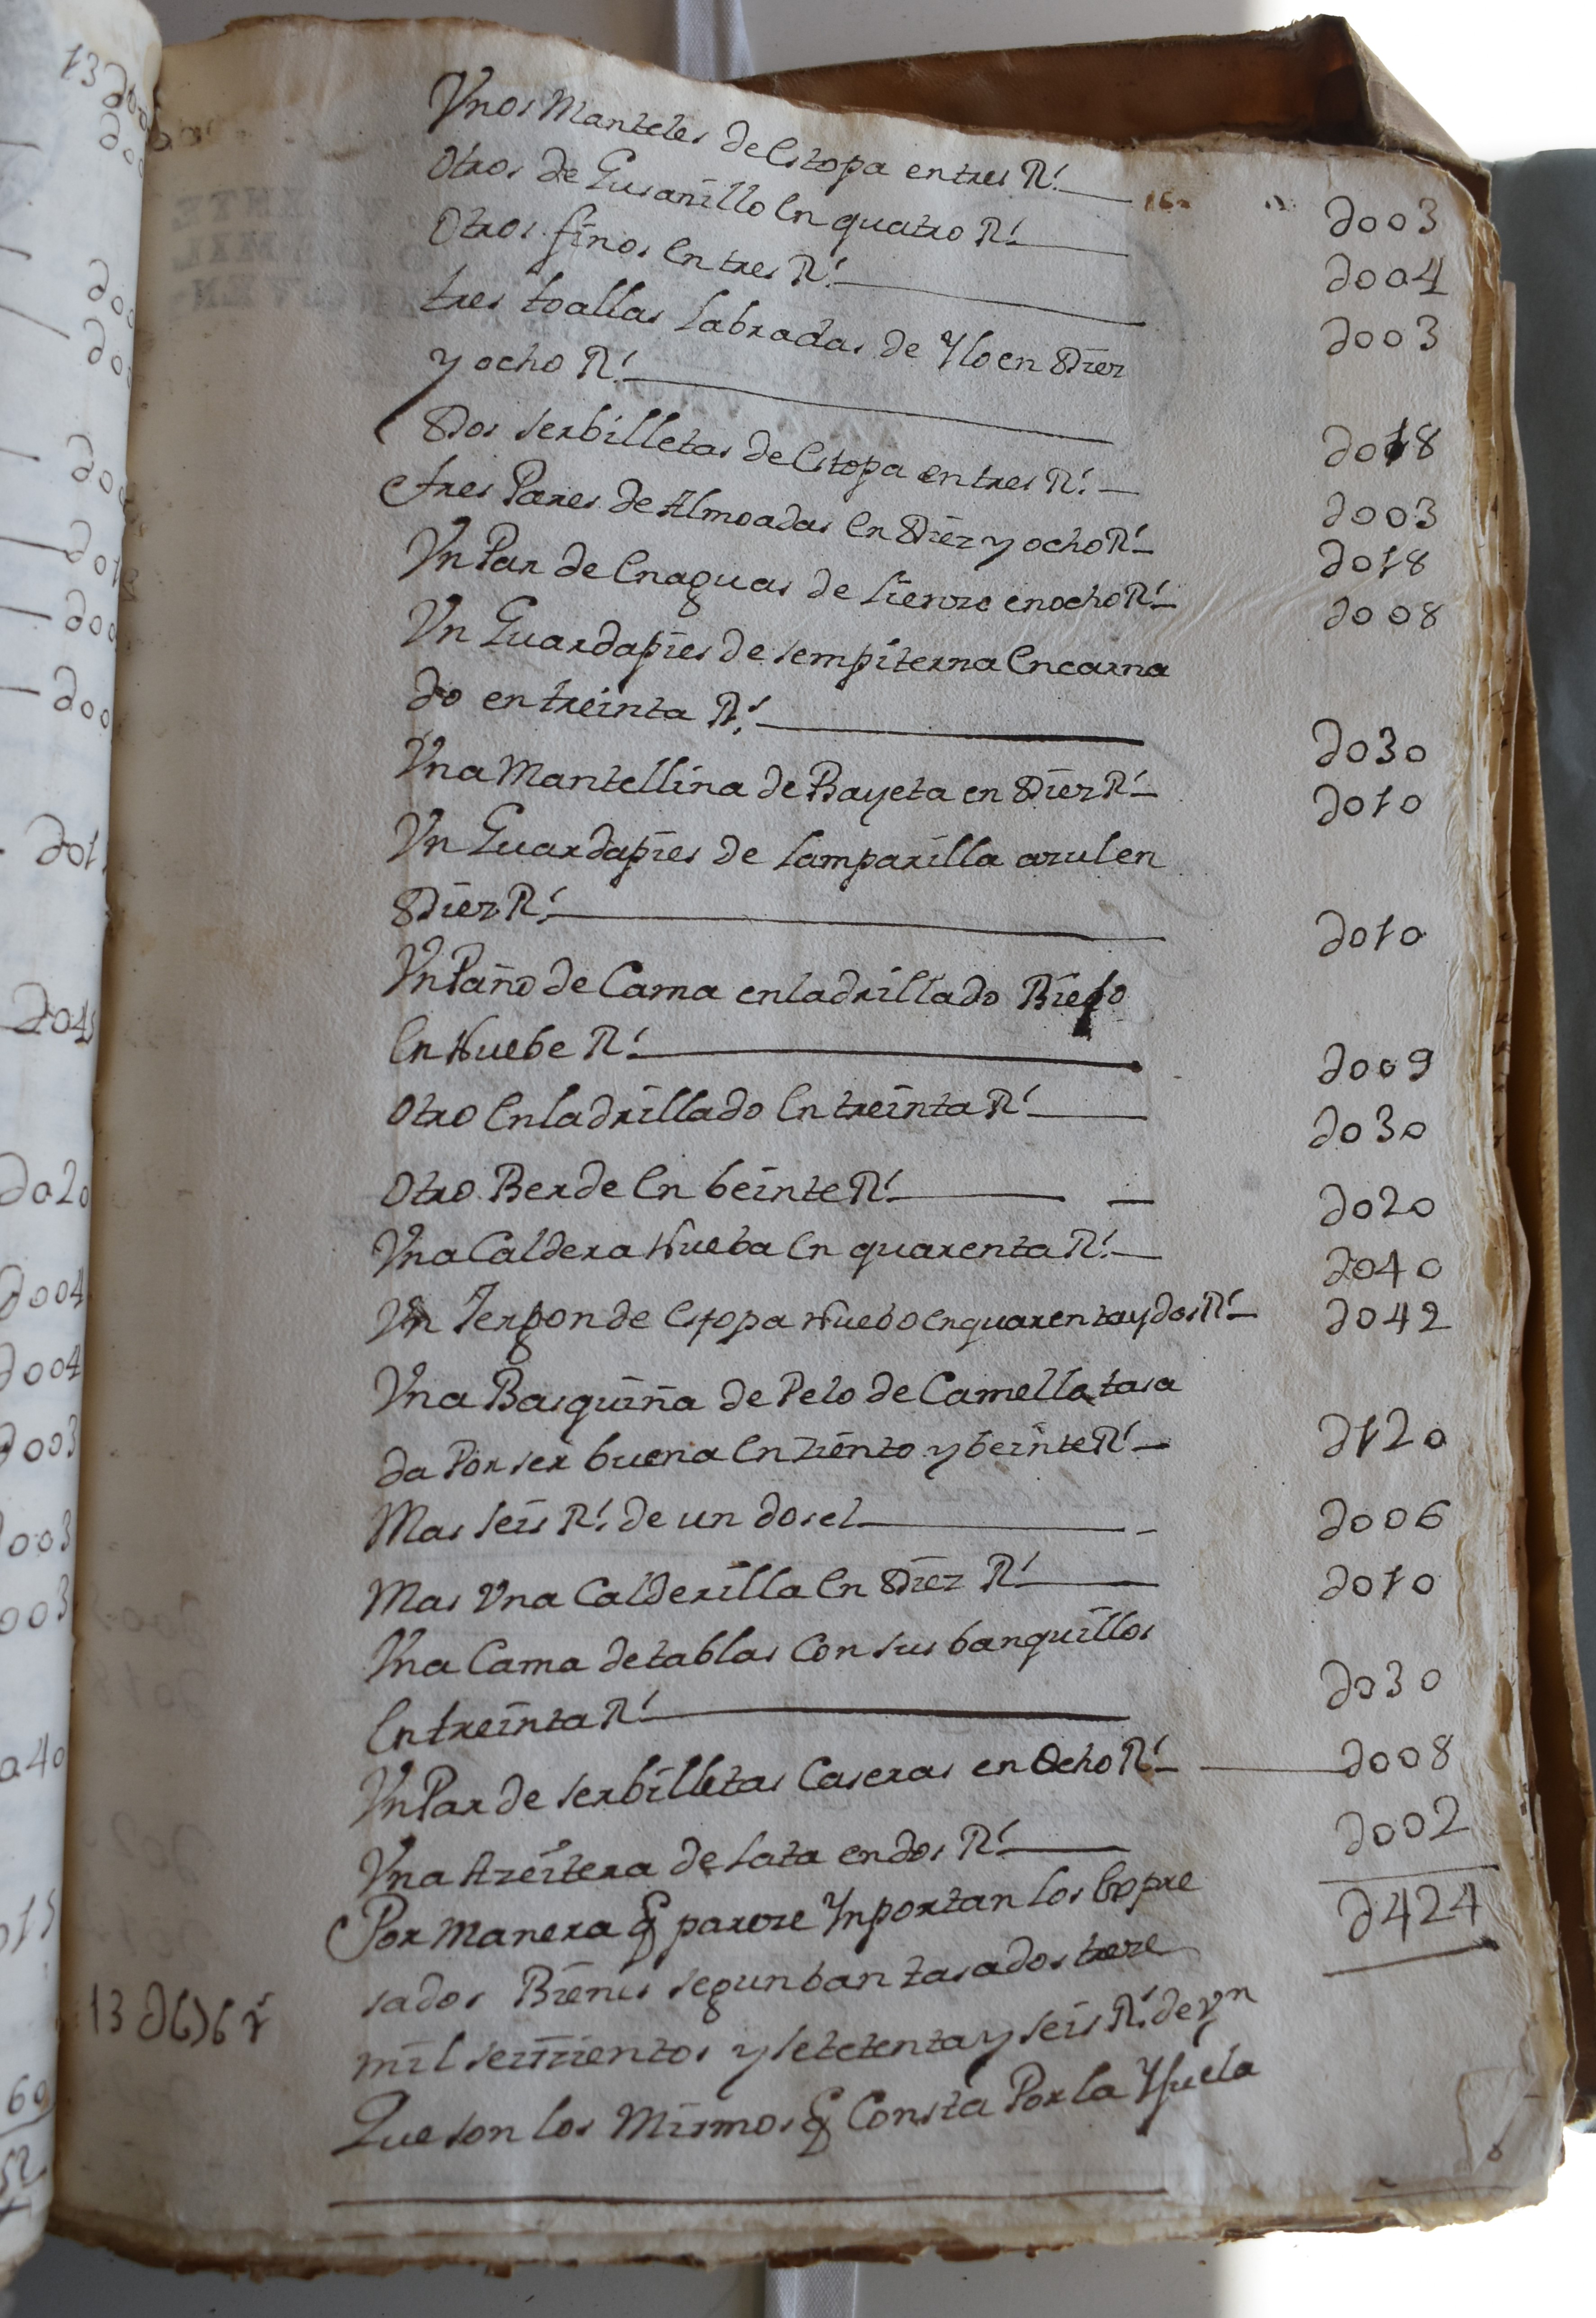 Vnos Manteles de Estopa en tres Rˢ. ∂003
Otros de Gusanillo En quatro Rˢ. ∂004
Otros finos En tres Rˢ. ∂003
tres toallas labradas de Ylo en Diez
y ocho Rˢ. ∂018
Dos serbilletas de Estopa en tres Rˢ. ∂003
tres Pares de Almoadas En Diez y ocho Rˢ. ∂018
Vn Par de Enaguas de lienzo en ocho Rˢ. ∂008
Vn Guardapies de sempiterna Encarna
do en treinta Rˢ. ∂030
Vna Mantellina de Bayeta en Diez Rˢ. ∂010
Vn Guardapies de lamparilla azul en
Diez Rˢ. ∂010
Vn Paño de Cama enladrillado Biejo
En Nuebe Rˢ. ∂009
Otro Enladrillado En treinta Rˢ. ∂030
Otro Berde En beinte Rˢ. ∂020
Vna Caldera Nueba En quarenta Rˢ. ∂040
Vn Jergon de Estopa Nuebo En quarenta y dos Rˢ. ∂042
Vna Basquiña de Pelo de Camello tasa
da Por ser buena En ziento y beinte Rˢ. ∂120
Mas seis Rˢ. de un dosel ∂006
Mas Vna Calderilla En Diez Rˢ. ∂010
Vna Cama de tablas Con sus banquillos
En treinta Rˢ. ∂030
Vn Par de serbilletas Caseras en Ocho Rˢ. ∂008
Vna Azeitera de lata en dos Rˢ. ∂002
Por Manera q pareze Ynportan los Espre ∂424
sados Bienes segun ban tasados treze
13∂676 rˢ mil seiszientos y setetenta y seis Rˢ. de Vn
Que son los Mismos q Consta Por la Yjuela